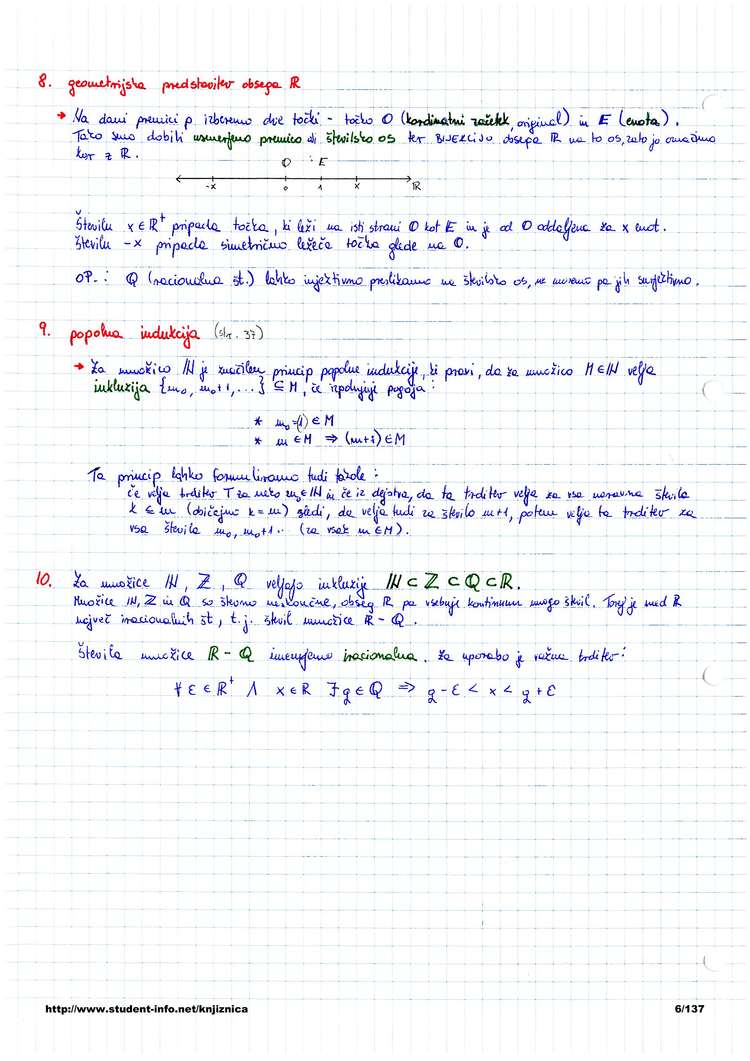 8. geometrijska predstavitev obsega ℝ
→ Na dani premici p izberemo dve točki - točko O (kordinatni začetek, original) in E (enota).
Tako smo dobili usmerjeno premico ali številsko os ter BIJEKCIJO obsega ℝ na to os, zato jo označimo
kar z ℝ.
O E
-x 0 1 x ℝ
Številu x ∈ ℝ⁺ pripada točka, ki leži na isti strani O kot E in je od O oddaljena za x enot.
Številu -x pripada simetrično ležeča točka glede na O.
OP.: Q (racionalna št.) lahko injektivno preslikamo na številsko os, ne moremo pa jih surjektivno.
9. popolna indukcija (str. 37)
→ Za množico ℕ je značilen princip popolne indukcije, ki pravi, da za množico M ∈ ℕ velja
inkluzija {n₀, n₀+1, ...} ⊆ M, če izpolnjuje pogoja:
* n₀(=1) ∈ M
* n ∈ M ⇒ (n+1) ∈ M
Ta princip lahko formuliramo tudi takole:
če velja trditev T za neko n₀ ∈ ℕ in če iz dejstva, da ta trditev velja za vsa naravna števila
k ≤ n (običajno k = n) sledi, da velja tudi za število n+1, potem velja ta trditev za
vsa števila n₀, n₀+1.. (za vsak n ∈ M).
10. Za množice ℕ, ℤ, ℚ veljajo inkluzije ℕ ⊂ ℤ ⊂ ℚ ⊂ ℝ.
Množice ℕ, ℤ in ℚ so števno neskončne, obseg ℝ pa vsebuje kontinuum mnogo števil. Torej je med ℝ
največ iracionalnih št, t.j. števil množice ℝ - ℚ.
Števila množice ℝ - ℚ imenujemo irasionalna. Za uporabo je važna trditev:
∀ ε ∈ ℝ⁺ ∧ x ∈ ℝ ∃ q ∈ ℚ ⇒ q - ε < x < q + ε
http://www.student-info.net/knjiznica 6/137